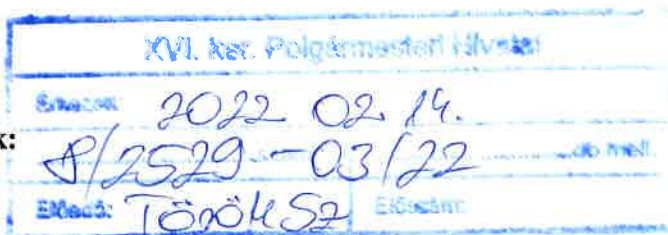 XVI. ker. Polgármesteri Hivatal
Érkezett: 2022 02. 14.
k:
8/2529-03/22 ........... db mell.
Előadó: Török Sz Előszám: